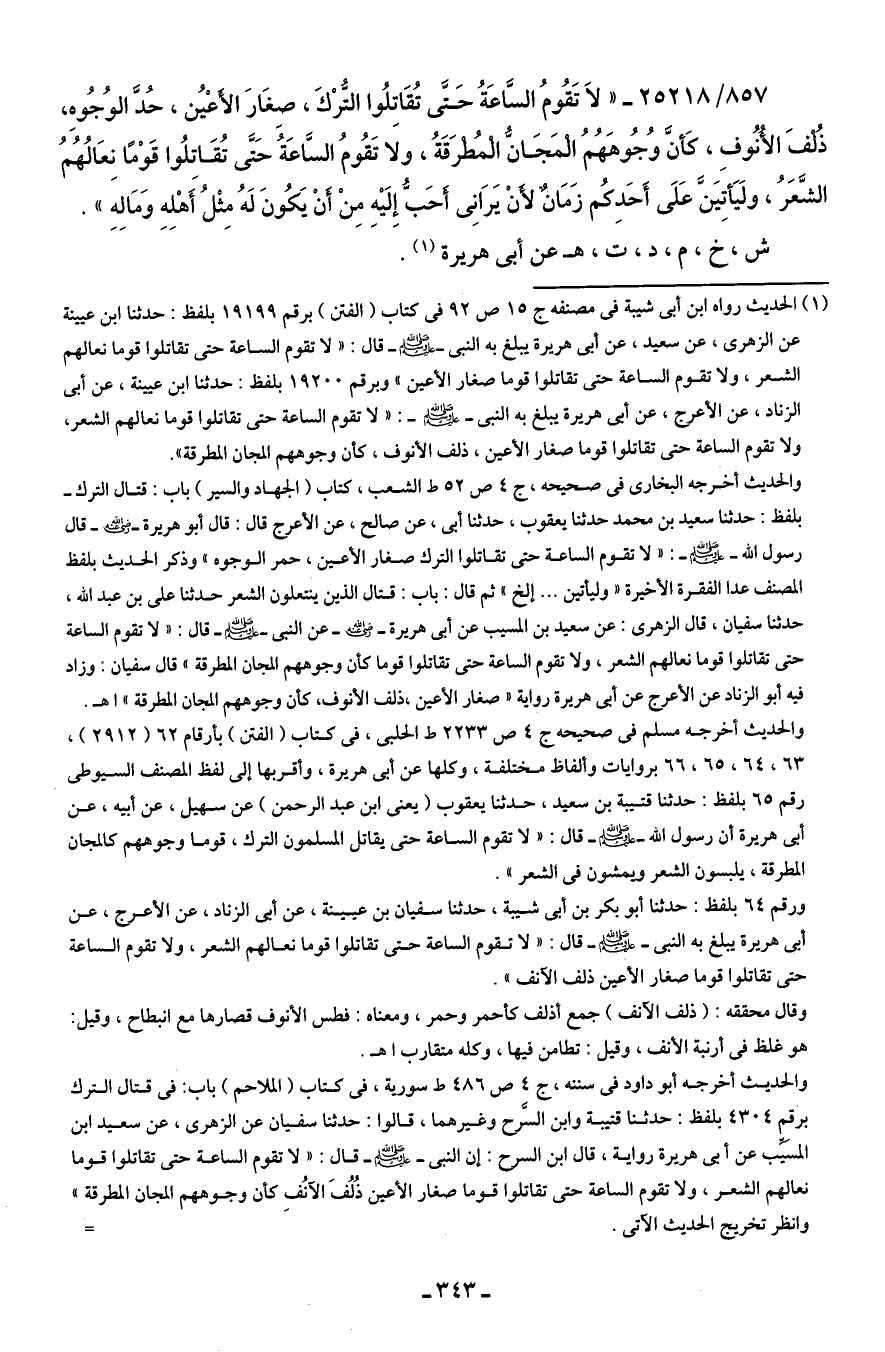 ٢٥٢١٨/٨٥٧ ـ « لاَ تَقُومُ السَّاعَةُ حَـتَّى تُقَاتِلُوا التُّرْكَ ، صِغَارَ الأَعْيُن ، حُدَّ الوُجُوهِ،
ذُلْفَ الأُنُوفِ ، كَأَنَّ وُجُوهَهُمُ المَجَانُّ الْمُطرَقَةُ ، ولا تَقُومُ السَّاعَةُ حَتَّى تُقَـاتِلُوا قَوْمًا نِعَالُهُمُ
الشَّعَرُ ، ولَيَأتِيَنَّ عَلَى أَحَدِكُم زَمَانٌ لأَنْ يَرَانِى أَحَبُّ إِلَيْهِ مِنْ أَنْ يَكُونَ لَهُ مِثْلُ أَهْلِهِ وَمَالِهِ » .
ش ، خ ، م ، د ، ت ، هـ عن أبى هريرة (١) .
(١) الحديث رواه ابن أبى شيبة فى مصنفه ج ١٥ ص ٩٢ فى كتاب ( الفتن ) برقم ١٩١٩٩ بلفظ : حدثنا ابن عيينة
عن الزهرى ، عن سعيد ، عن أبى هريرة يبلغ به النبى ـ ﷺ ـ قال : « لا تقوم الساعة حتى تقاتلوا قوما نعالهم
الشعر ، ولا تقوم الساعة حتى تقاتلوا قوما صغار الأعين » وبرقم ١٩٢٠٠ بلفظ : حدثنا ابن عيينة ، عن أبى
الزناد ، عن الأعرج ، عن أبى هريرة يبلغ به النبى ـ ﷺ ـ : « لا تقوم الساعة حتى تقاتلوا قوما نعالهم الشعر،
ولا تقوم الساعة حتى تقاتلوا قوما صغار الأعين ، ذلف الأنوف ، كأن وجوههم المجان المطرقة».
والحديث أخرجه البخارى فى صحيحه ، ج ٤ ص ٥٢ ط الشعب ، كتاب ( الجهاد والسير ) باب : قتال الترك ـ
بلفظ : حدثنا سعيد بن محمد حدثنا يعقوب ، حدثنا أبى ، عن صالح ، عن الأعرج قال : قال أبو هريرة ـ رضي الله عنه ـ قال
رسول الله ـ ﷺ ـ : « لا تقوم الساعة حتى تقاتلوا الترك صغار الأعين ، حمر الوجوه » وذكر الحديث بلفظ
المصنف عدا الفقرة الأخيرة « وليأتين ... إلخ » ثم قال : باب : قتال الذين ينتعلون الشعر حدثنا على بن عبد الله ،
حدثنا سفيان ، قال الزهرى : عن سعيد بن المسيب عن أبى هريرة ـ رضي الله عنه ـ عن النبى ـ ﷺ ـ قال : « لا تقوم الساعة
حتى تقاتلوا قوما نعالهم الشعر ، ولا تقوم الساعة حتى تقاتلوا قوما كأن وجوههم المجان المطرقة » قال سفيان : وزاد
فيه أبو الزناد عن الأعرج عن أبى هريرة رواية « صغار الأعين ،ذلف الأنوف، كأن وجوههم المجان المطرقة » ا هـ .
والحديث أخرجه مسلم فى صحيحه ج ٤ ص ٢٢٣٣ ط الحلبى ، فى كتاب ( الفتن ) بأرقام ٦٢ ( ٢٩١٢ ) ،
٦٣ ، ٦٤ ، ٦٥ ، ٦٦ بروايات وألفاظ مختلفة ، وكلها عن أبى هريرة ، وأقربها إلى لفظ المصنف السيوطى
رقم ٦٥ بلفظ : حدثنا قتيبة بن سعيد ، حدثنا يعقوب ( يعنى ابن عبد الرحمن ) عن سهيل ، عن أبيه ، عن
أبى هريرة أن رسول الله ـ ﷺ ـ قال : « لا تقوم الساعة حتى يقاتل المسلمون الترك ، قوما وجوههم كالمجان
المطرقة ، يلبسون الشعر ويمشون فى الشعر » .
ورقم ٦٤ بلفظ : حدثنا أبو بكر بن أبى شيبة ، حدثنا سفيان بن عيينة ، عن أبى الزناد ، عن الأعرج ، عن
أبى هريرة يبلغ به النبى ـ ﷺ ـ قال : « لا تقوم الساعة حتى تقاتلوا قوما نعالهم الشعر ، ولا تقوم الساعة
حتى تقاتلوا قوما صغار الأعين ذلف الآنف » .
وقال محققه : ( ذلف الآنف ) جمع أذلف كأحمر وحمر ، ومعناه : فطس الأنوف قصارها مع انبطاح ، وقيل:
هو غلظ فى أرنبة الأنف ، وقيل : تطامن فيها ، وكله متقارب ا هـ .
والحديث أخرجه أبو داود فى سننه ، ج ٤ ص ٤٨٦ ط سورية ، فى كتاب ( الملاحم ) باب: فى قتال الترك
برقم ٤٣٠٤ بلفظ : حدثنا قتيبة وابن السَّرح وغيرهما ، قالوا : حدثنا سفيان عن الزهرى ، عن سعيد ابن
المسيِّب عن أبى هريرة رواية ، قال ابن السرح : إن النبى ـ ﷺ ـ قال : « لا تقوم الساعة حتى تقاتلوا قوما
نعالهم الشعر ، ولا تقوم الساعة حتى تقاتلوا قوما صغار الأعين ذُلُفَ الآنُفِ كأن وجوههم المجان المطرقة »
وانظر تخريج الحديث الآتى . =
ـ ٣٤٣ ـ